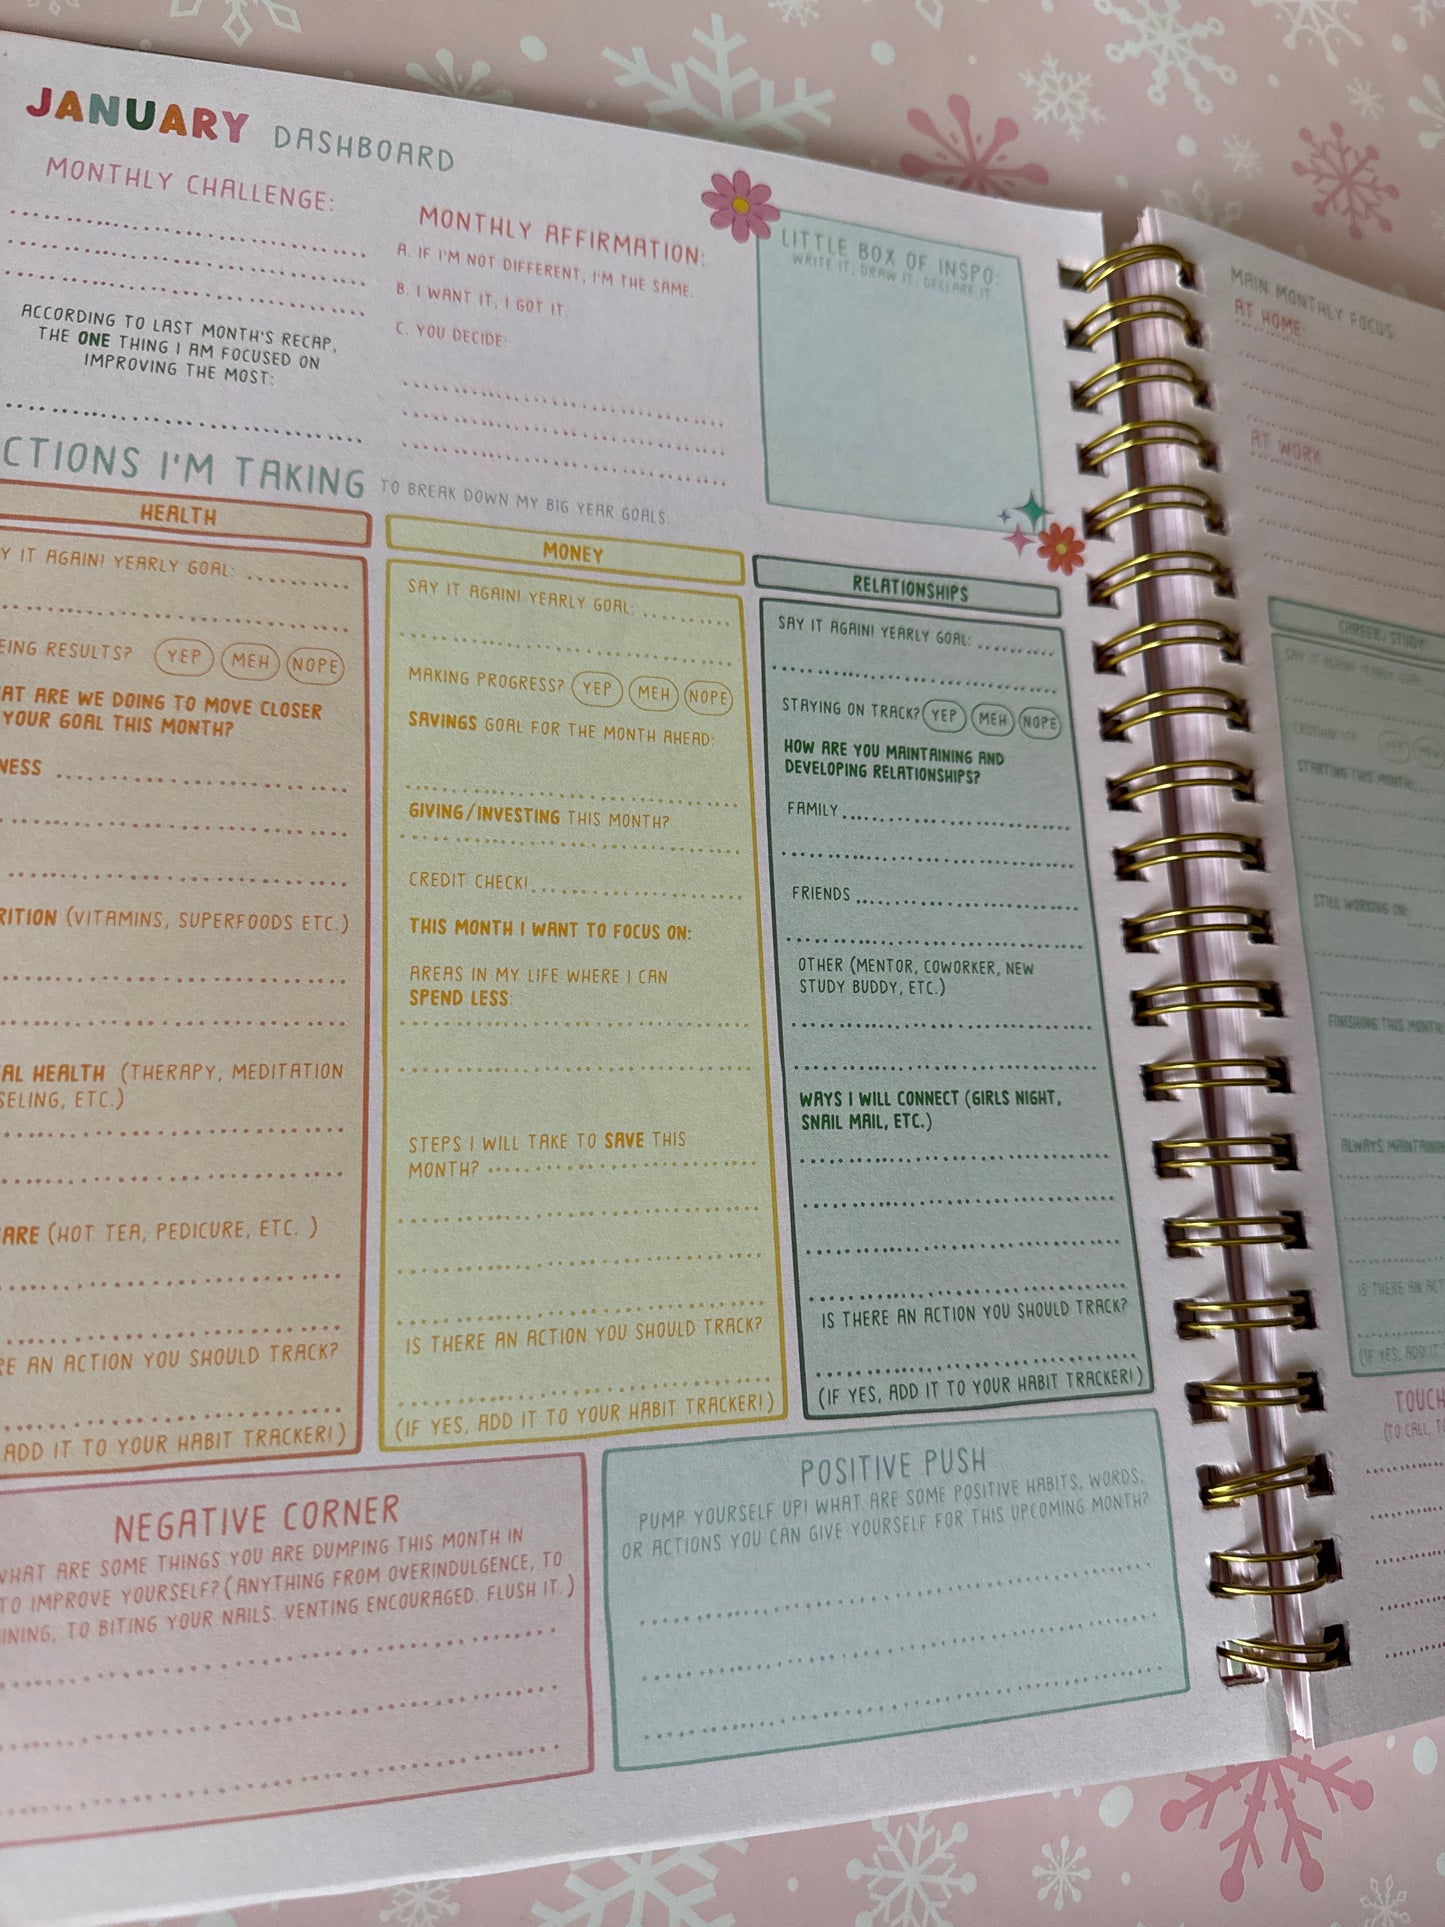 JANUARY DASHBOARD
MONTHLY CHALLENGE:
ACCORDING TO LAST MONTH'S RECAP,
THE ONE THING I AM FOCUSED ON
IMPROVING THE MOST:
MONTHLY AFFIRMATION:
A. IF I'M NOT DIFFERENT, I'M THE SAME.
B. I WANT IT, I GOT IT.
C. YOU DECIDE:
LITTLE BOX OF INSPO:
WRITE IT, DRAW IT, DECLARE IT
CTIONS I'M TAKING TO BREAK DOWN MY BIG YEAR GOALS.
HEALTH
Y IT AGAIN! YEARLY GOAL:
EING RESULTS? YEP MEH NOPE
AT ARE WE DOING TO MOVE CLOSER
YOUR GOAL THIS MONTH?
NESS
RITION (VITAMINS, SUPERFOODS ETC.)
AL HEALTH (THERAPY, MEDITATION
SELING, ETC.)
ARE (HOT TEA, PEDICURE, ETC. )
RE AN ACTION YOU SHOULD TRACK?
ADD IT TO YOUR HABIT TRACKER!)
MONEY
SAY IT AGAIN! YEARLY GOAL:
MAKING PROGRESS? YEP MEH NOPE
SAVINGS GOAL FOR THE MONTH AHEAD:
GIVING/INVESTING THIS MONTH?
CREDIT CHECK!
THIS MONTH I WANT TO FOCUS ON:
AREAS IN MY LIFE WHERE I CAN
SPEND LESS:
STEPS I WILL TAKE TO SAVE THIS
MONTH?
IS THERE AN ACTION YOU SHOULD TRACK?
(IF YES, ADD IT TO YOUR HABIT TRACKER!)
RELATIONSHIPS
SAY IT AGAIN! YEARLY GOAL:
STAYING ON TRACK? YEP MEH NOPE
HOW ARE YOU MAINTAINING AND
DEVELOPING RELATIONSHIPS?
FAMILY
FRIENDS
OTHER (MENTOR, COWORKER, NEW
STUDY BUDDY, ETC.)
WAYS I WILL CONNECT (GIRLS NIGHT,
SNAIL MAIL, ETC.)
IS THERE AN ACTION YOU SHOULD TRACK?
(IF YES, ADD IT TO YOUR HABIT TRACKER!)
NEGATIVE CORNER
WHAT ARE SOME THINGS YOU ARE DUMPING THIS MONTH IN
TO IMPROVE YOURSELF? (ANYTHING FROM OVERINDULGENCE, TO
INING, TO BITING YOUR NAILS. VENTING ENCOURAGED. FLUSH IT.)
POSITIVE PUSH
PUMP YOURSELF UP! WHAT ARE SOME POSITIVE HABITS, WORDS,
OR ACTIONS YOU CAN GIVE YOURSELF FOR THIS UPCOMING MONTH?
MAIN MONTHLY FOCUS:
AT HOME:
AT WORK
CAREER/STUDY
SAY IT AGAIN! YEARLY GOAL:
CRUSHIN' IT? YEP MEH
STARTING THIS MONTH:
STILL WORKING ON:
FINISHING THIS MONTH
ALWAYS MAINTAININ
IS THERE AN ACT
(IF YES, ADD IT
TOUCH
(TO CALL, T